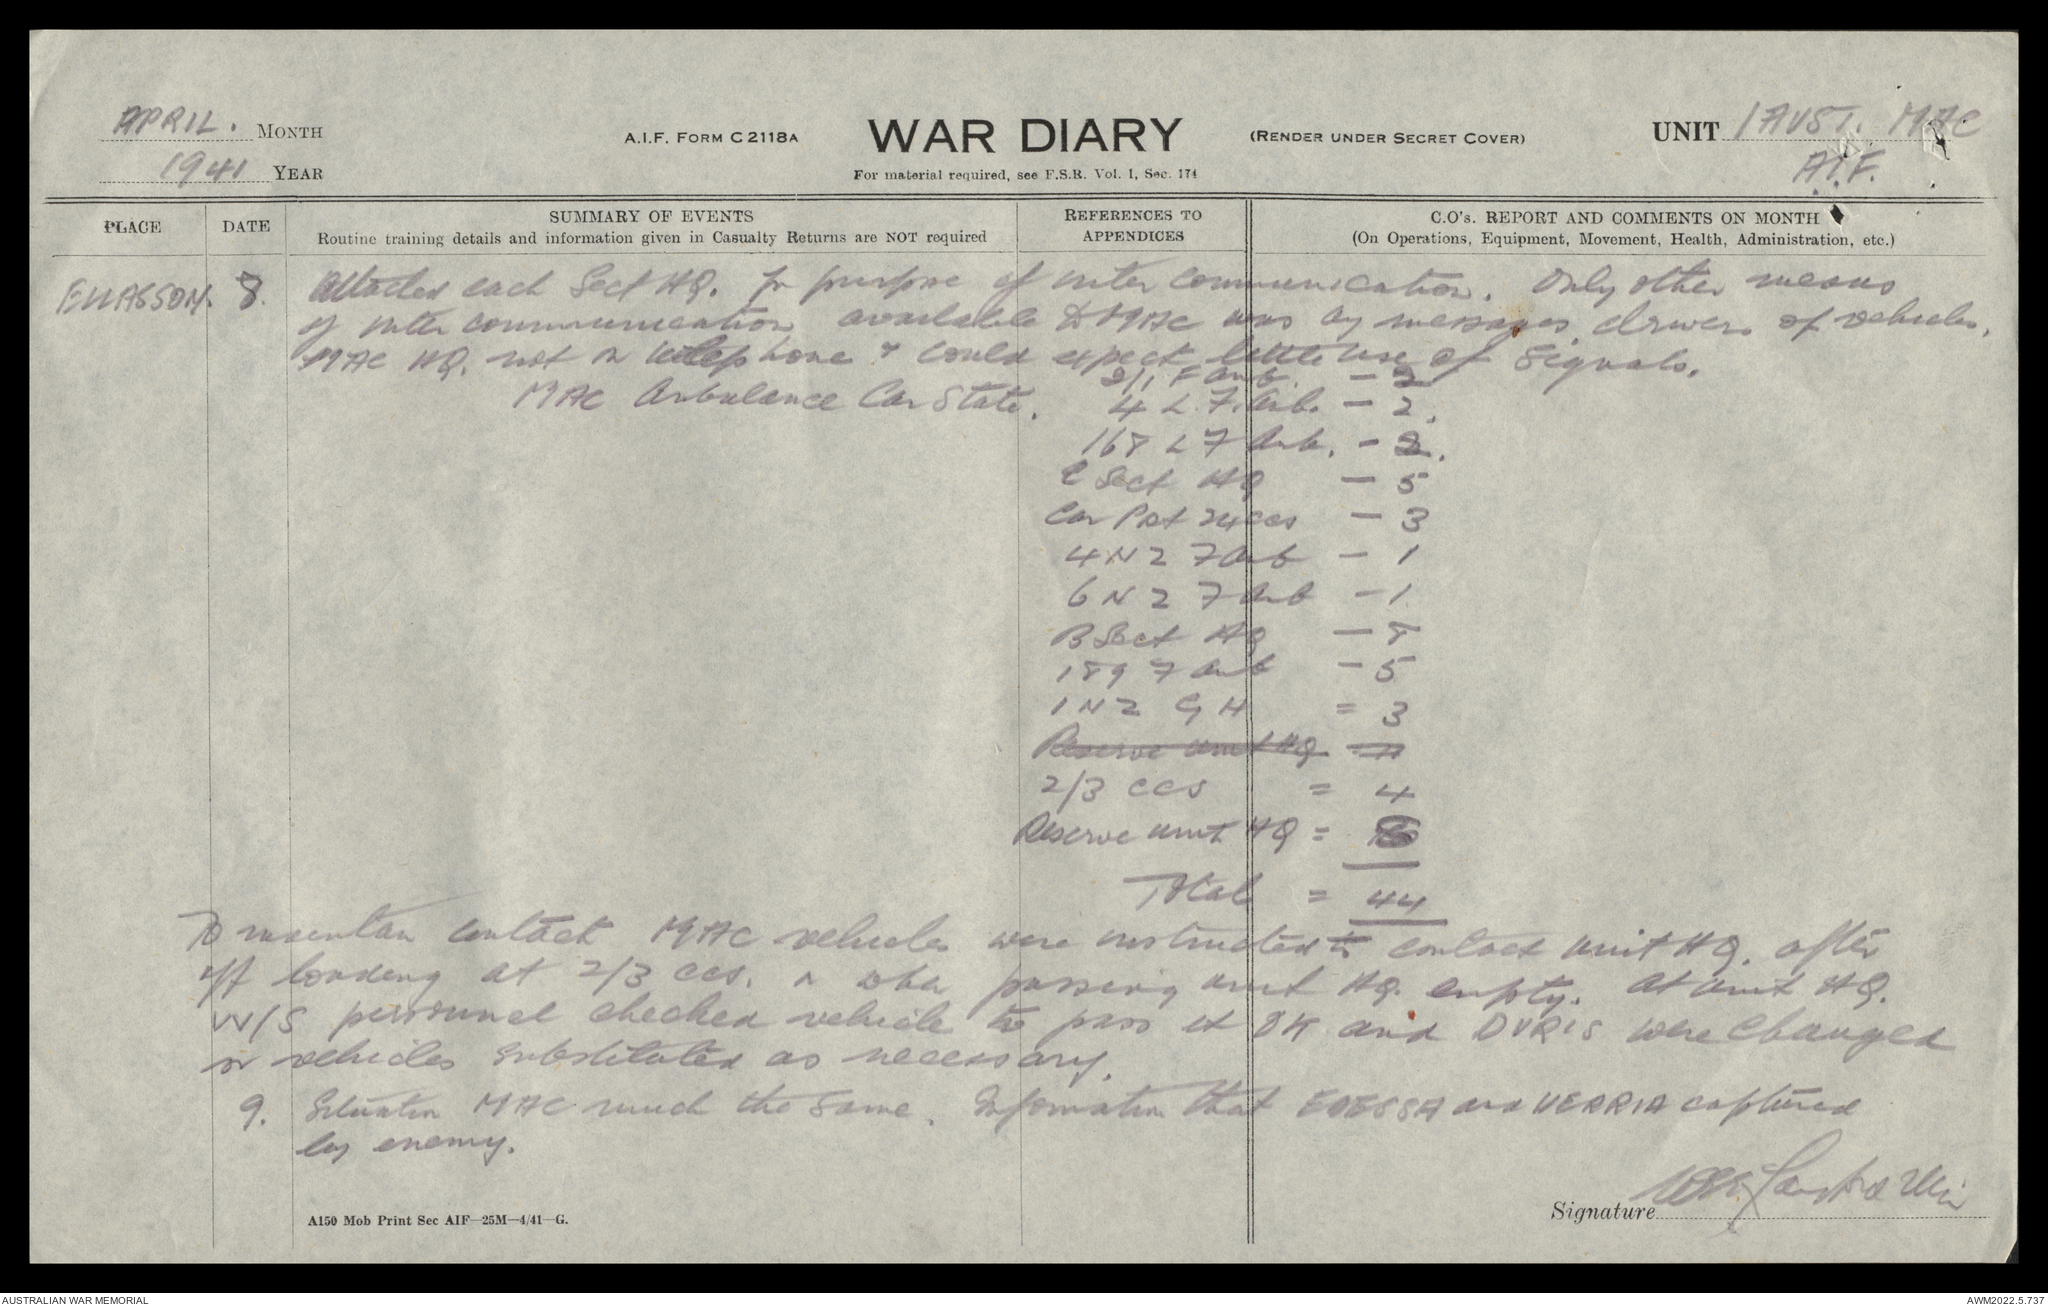 APRIL. MONTH
1941 YEAR
A.I.F. FORM C2118A
WAR DIARY
(RENDER UNDER SECRET COVER)
For material required, see F.S.R. Vol. 1, Sec. 174
UNIT 1 AUST. MAC
A.I.F.
PLACE
DATE
SUMMARY OF EVENTS
Routine training details and information given in Casualty Returns are NOT required
REFERENCES TO
APPENDICES
C.O's. REPORT AND COMMENTS ON MONTH
(On Operations, Equipment, Movement, Health, Administration, etc.)
ELLASSON. 8. attached each Sect HQ. for purpose of inter communication. Only other means
of inter communication available to MAC was by messages, drivers of vehicles.
MAC HQ. not on telephone & could expect little use of Signals.
MAC Ambulance Car State. 2/1 F Amb. - 2
4 L. F. Amb. - 2.
168 L F Amb. - 2.
C Sect HQ - 5
Car Post 24 CCS - 3
4 NZ F Amb - 1
6 NZ F Amb - 1
B Sect HQ - 8
189 F Amb - 5
1 NZ G H = 3
Reserve Unit HQ =
2/3 CCS = 4
Reserve Unit HQ =
Total = 44
To maintain contact MAC vehicles were instructed to contact Unit HQ. after
off loading at 2/3 CCS. or when passing Unit HQ. empty. At Unit HQ.
W/S personnel checked vehicle to pass it OK and DVRIS were changed
or vehicles substituted as necessary.
9. Situation MAC much the same. Information that EDESSA and VERRIA captured
by enemy.
A150 Mob Print Sec AIF—25M—4/41—G.
Signature
AUSTRALIAN WAR MEMORIAL
AWM2022.5.737